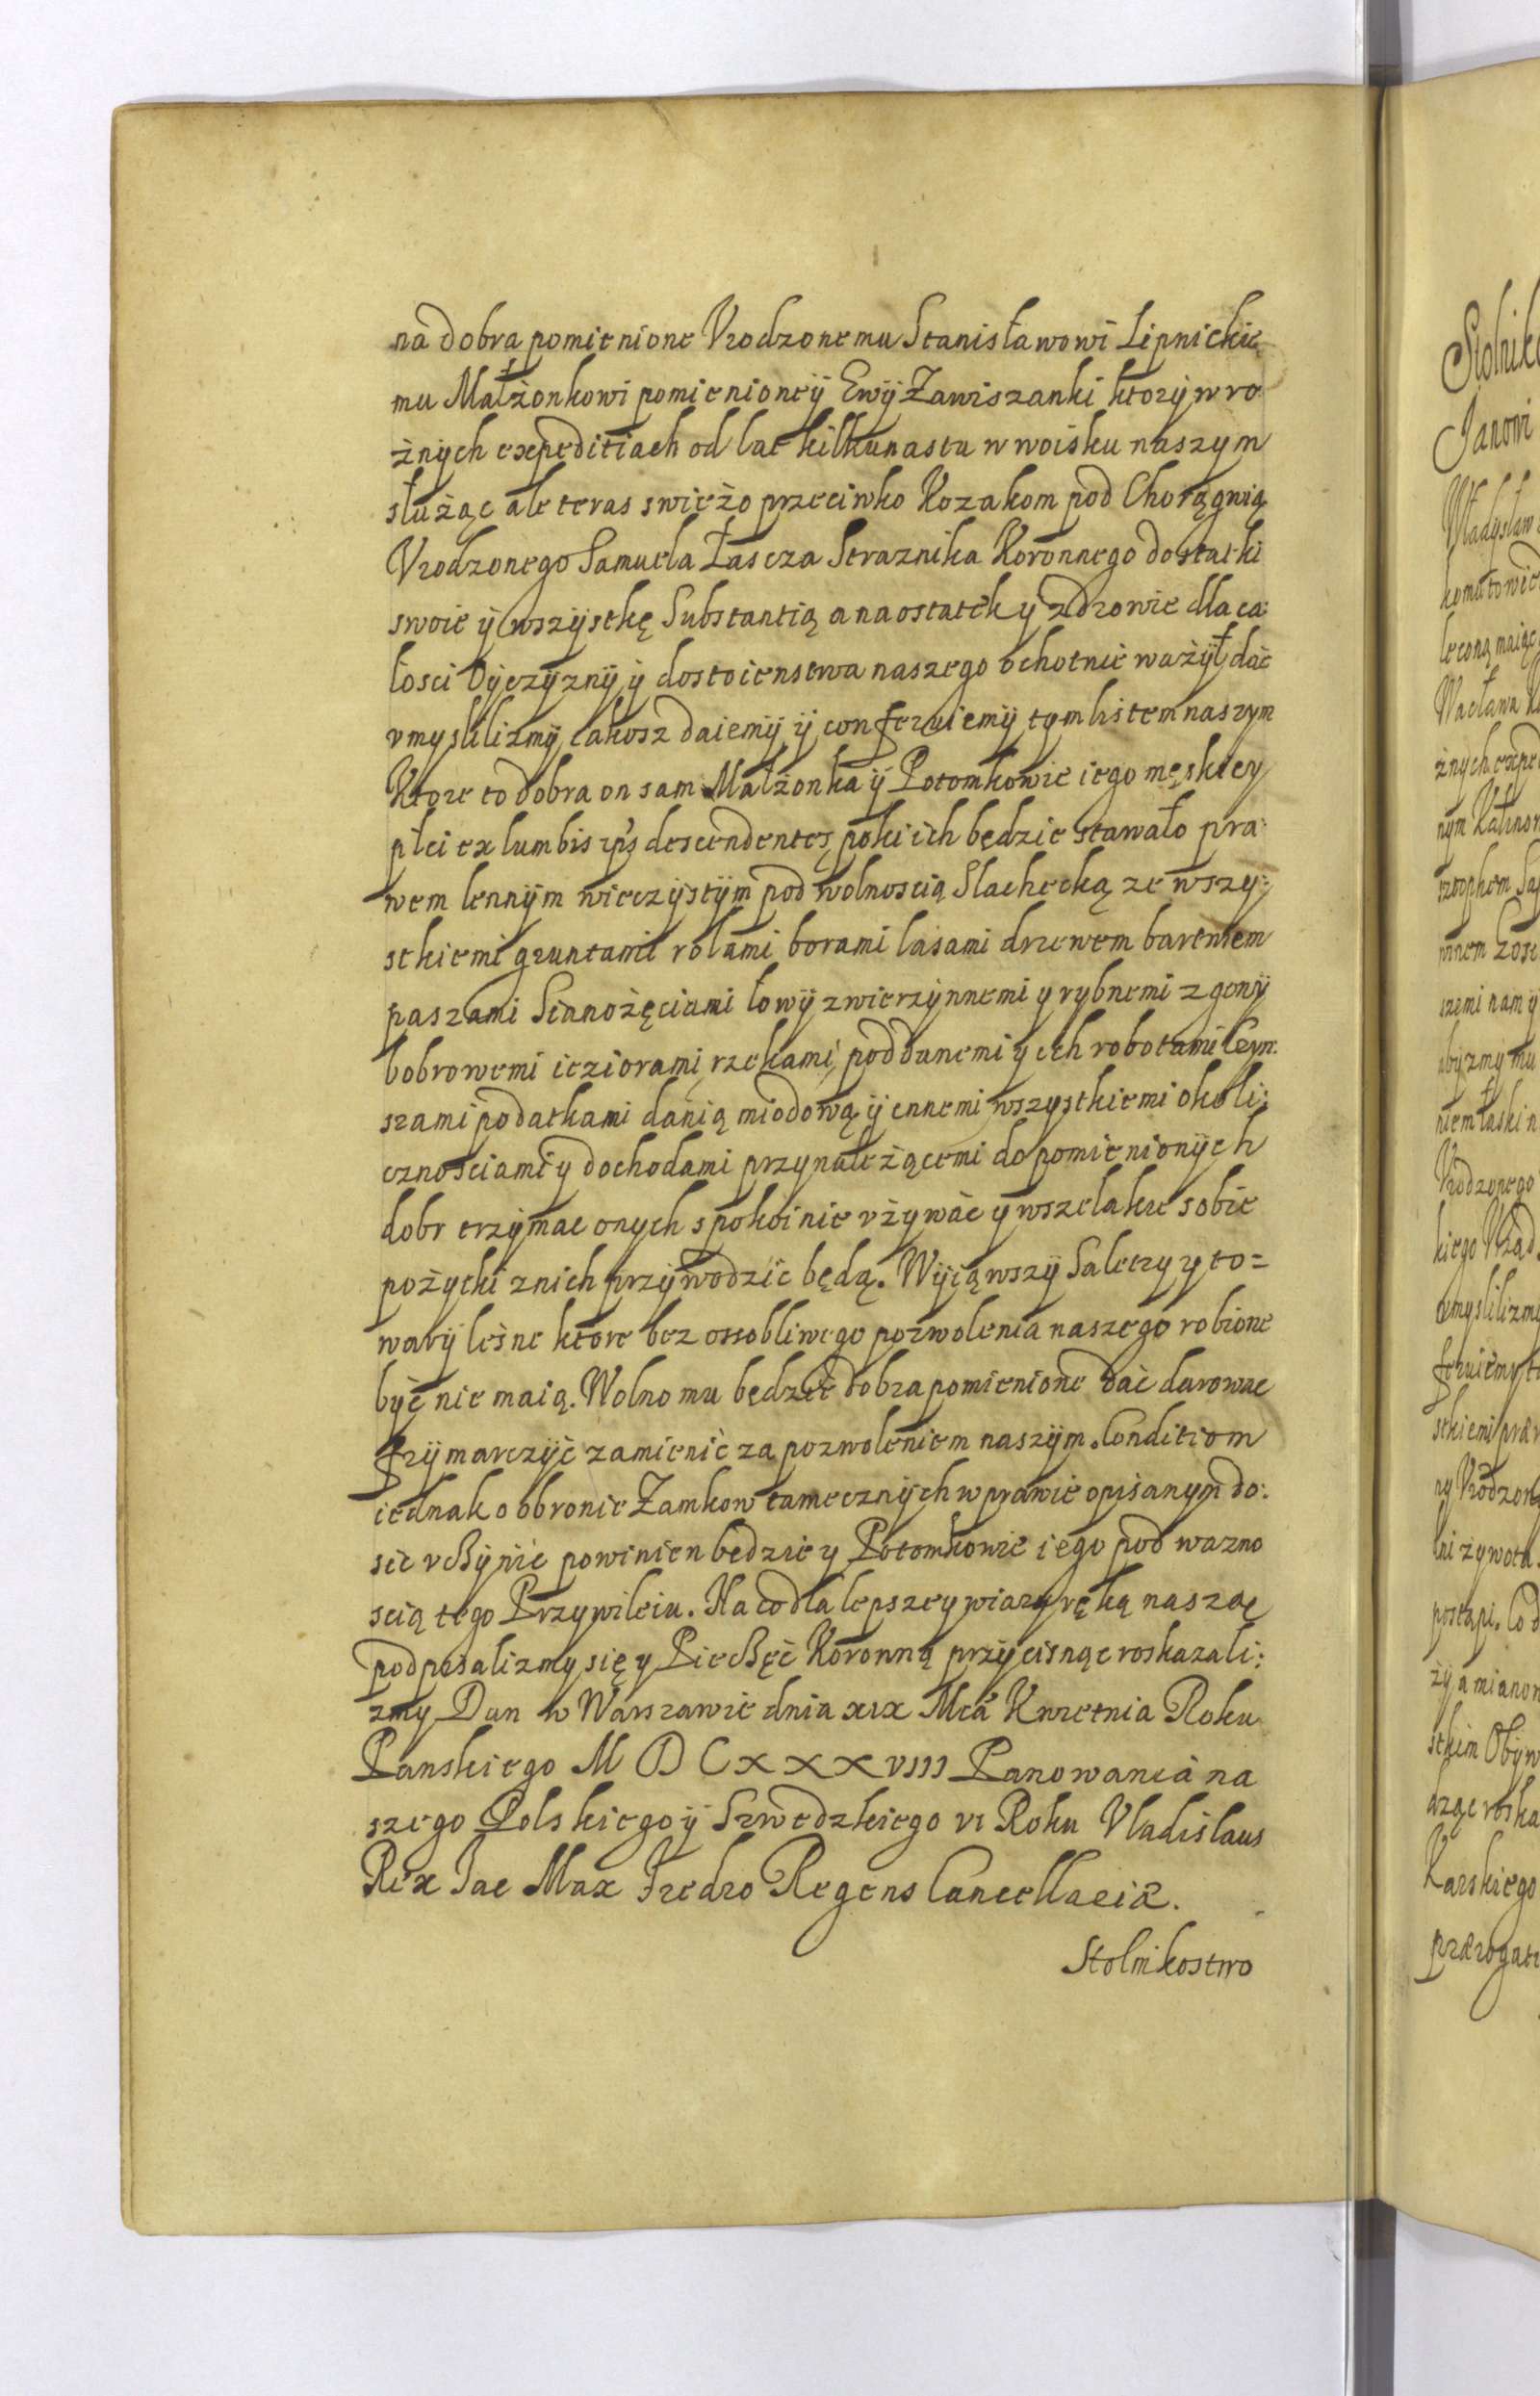 na dobra pomienione Vrodzonemu Stanisławowi Lipnickie
mu Małżonkowi pomienioney Ewÿ Zawiszanki ktory w ro
żnych expeditiach od lat kilkunastu w woisku naszym
służąc ale teras swieżo przeciwko Kozakom pod Chorągwią
Vrodzonego Samuela Łascza Straznika Koronnego dostatki
swoie ÿ wszÿstkę Substantią a na ostatek y zdrowie dla ca:
łosci Oÿczÿznÿ ÿ dostoienstwa naszego ochotnie ważÿł dać
vmyslilizmÿ iakosz daiemÿ ÿ conferuiemÿ tym listem naszym
Ktore to dobra on sam Małżonka ÿ Potomkowie iego męskiey
płci ex lumbis ipsis descendentes poki ich będzie stawało pra:
wem lennÿm wieczÿstÿm pod wolnoscią Slachecką ze wszy:
stkiemi gruntami rolami borami lasami drzewem bartnem
paszami Sianożęciami łowÿ zwierzÿnnemi y rybnemi z gonÿ
bobrowemi ieziorami rzekami poddanemi y ich robotami Czyn:
szami podatkami danią miodową ÿ innemi wszystkiemi okoli:
cznosciami y dochodami przynależącemi do pomienionÿch
dobr trzÿmac onych spokoinie vżywać y wszelakie sobie
pożytki z nich przÿwodzic będą. Wÿiąwszÿ Saletry y to=
warÿ leśne ktore bez ossobliwego pozwolenia naszego robione
bÿć nie maią. Wolno mu będzie dobra pomienione dać darowac
frÿmarczÿć zamienić za pozwoleniem naszÿm. Conditiom
iednak o obronie Zamkow tamecznÿch w prawie opisanym do:
sić vczÿnić powinien będzie y Potomkowie iego pod wazno
scią tego Przywileiu. Na co dla lepszey wiary ręką naszą
podpisalizmy się y Pieczęć Koronną przÿcisnąc roskazali:
zmy Dan w Warszawie dnia xıx Mca Kwietnia Roku
Panskiego M D C x x x vııı Panowania na
szego Polskiego ÿ Szwedzkiego vı Roku Vladislaus
Rex Jac Max Fredro Regens Cancellariæ.
Stolnikostwo
Stolnik
Janowi
Władysław